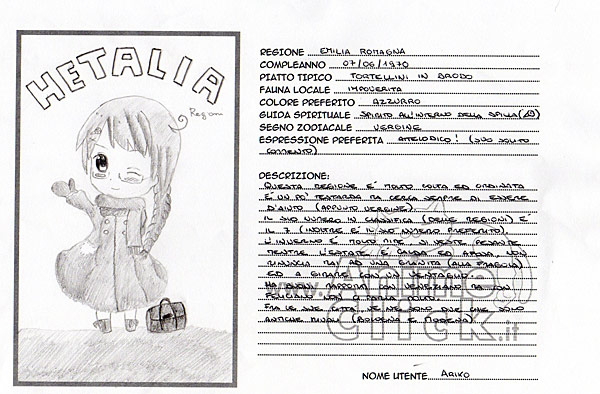 HETALIA
Regioni
REGIONE EMILIA ROMAGNA
COMPLEANNO 07/06/1970
PIATTO TIPICO TORTELLINI IN BRODO
FAUNA LOCALE IMPOVERITA
COLORE PREFERITO AZZURRO
GUIDA SPIRITUALE SPIRITO ALL'INTERNO DELLA SPILLA
SEGNO ZODIACALE VERGINE
ESPRESSIONE PREFERITA ! (SUO SOLITO
COMMENTO)
DESCRIZIONE:
QUESTA REGIONE È MOLTO COLTA ED ORDINATA
È UN PO' TESTARDA MA CERCA SEMPRE DI ESSERE
D'AIUTO (APPUNTO VERGINE).
IL SUO NUMERO IN CLASSIFICA (DELLE REGIONI) È
IL 7 (INOLTRE È IL SUO NUMERO PREFERITO).
L'INVERNO È MOLTO MITE SI VESTE PESANTE
MENTRE L'ESTATE È CALDA ED AFOSA, NON
RINUNCIA MAI AD UNA GRANITA (ALLA FRAGOLA)
ED A GIRARE CON UN VENTAGLIO.
HA BUONI RAPPORTI CON VENEZIANO MA CON
FELICIANO NON CI PARLA MOLTO.
FRA LE SUE CITTÀ, VE NE SONO DUE CHE SONO
ANTICHE RIVALI (BOLOGNA E MODENA).
www.animeclick.it
NOME UTENTE ARIKO